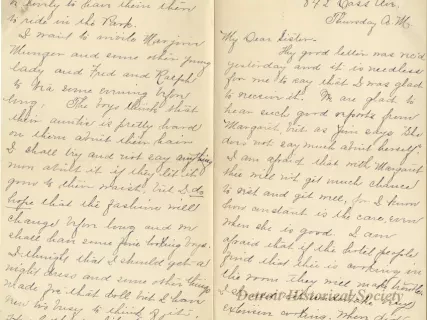 842 Cass Av.
Thursday A.M.
My Dear Sister.
Thy good letter was rec'd
yesterday and it is needless
for me to say that I was glad
to receive it. We are glad to
hear such good reports from
Margaret, but as Jim says "She
does not say much about herself."
I am afraid that with Margaret
thee will not get much chance
to rest and get well, for I know
how constant is the care, even
when she is good. I am
afraid that if the hotel people
find that thee is cooking in
the room they will make trouble
Detroit Historical Society
cooking. When
or family to learn them then
to ride in the Park.
I want to invite Marjorie
Munger and some other young
lady and Fred and Ralph
to tea some evening before
long. The boys think that
their auntie is pretty hard
on them about their hair
I shall try and not say anything
more about it if they let it
grow to their waist, but I do
hope that the fashion will
change before long and we
shall have some fine looking boys.
I thought that I should get a
night dress and some other things
made for that doll but I have
been too busy to think of it.